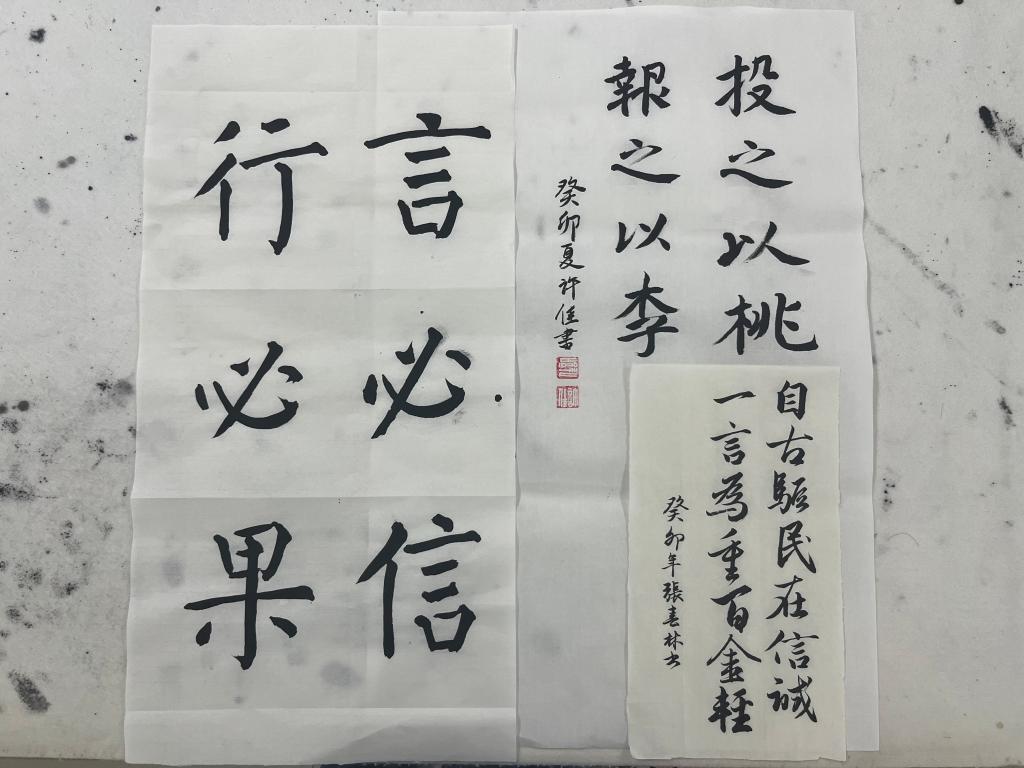 言必信
行必果
投之以桃
報之以李
癸卯夏许佳書
自古驅民在信誠
一言為重百金輕
癸卯年張春林书